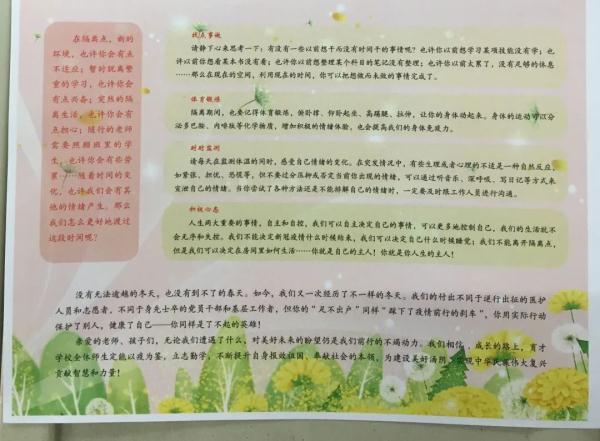 在隔离点，新的
环境，也许你会有点
不适应；暂时脱离繁
重的学习，也许你会
有点兴奋；突然的隔
离生活，也许你会有
点担心；随行的老师
需要照顾班里的学
生，也许你会有些劳
累……随着时间的变
化，也许我们会有其
他的情绪产生。那么
我们怎么更好地渡过
这段时间呢？
找点事做
请静下心来思考一下：有没有一些以前想干而没有时间干的事情呢？也许你以前想学习某项技能没有学；也
许以前你想看某本书没有看；也许以前想整理某个科目的笔记没有整理；也许你以前太累了，没有足够的休息
……那么在现在的空间，利用现在的时间，你可以把想做而未做的事情完成了。
体育锻炼
隔离期间，也要记得体育锻炼，俯卧撑、仰卧起坐、高踢腿、拉伸，让你的身体动起来。身体的运动可以分
泌多巴胺、内啡肽等化学物质，增加积极的情绪体验，也会提高我们的身体免疫力。
时时监测
请每天在监测体温的同时，感受自己情绪的变化。在突发情况中，有些生理或者心理的不适是一种自然反应，
如紧张、担忧、恐慌等，但不要过分压抑或否定当前你出现的情绪，可以通过听音乐、深呼吸、写日记等方式来
安抚自己的情绪。当你尝试了各种方法还是不能排解自己的情绪时，一定要及时跟工作人员进行沟通。
积极心态
人生两大重要的事情，自主和自控，我们可以自主决定自己的事情，可以更多地控制自己，我们的生活就不
会无序和失控。我们不能决定新冠疫情什么时候结束，我们可以决定自己什么时候睡觉；我们不能离开隔离点，
但是我们可以决定在房间里如何生活……你就是自己的主人！你就是你人生的主人！
没有无法逾越的冬天，也没有到不了的春天。如今，我们又一次经历了不一样的冬天。我们的付出不同于逆行出征的医护
人员和志愿者，不同于身先士卒的党员干部和基层工作者，但你的“足不出户”同样“踩下了疫情前行的刹车”，你用实际行动
保护了别人，健康了自己——你同样是了不起的英雄！
亲爱的老师、孩子们，无论我们遭遇了什么，对美好未来的盼望仍是我们前行的不竭动力。我们相信，成长的路上，育才
学校全体师生定能以疫为鉴，立志勤学，不断提升自身报效祖国、奉献社会的本领，为建设美好汤阴、实现中华民族伟大复兴
贡献智慧和力量！